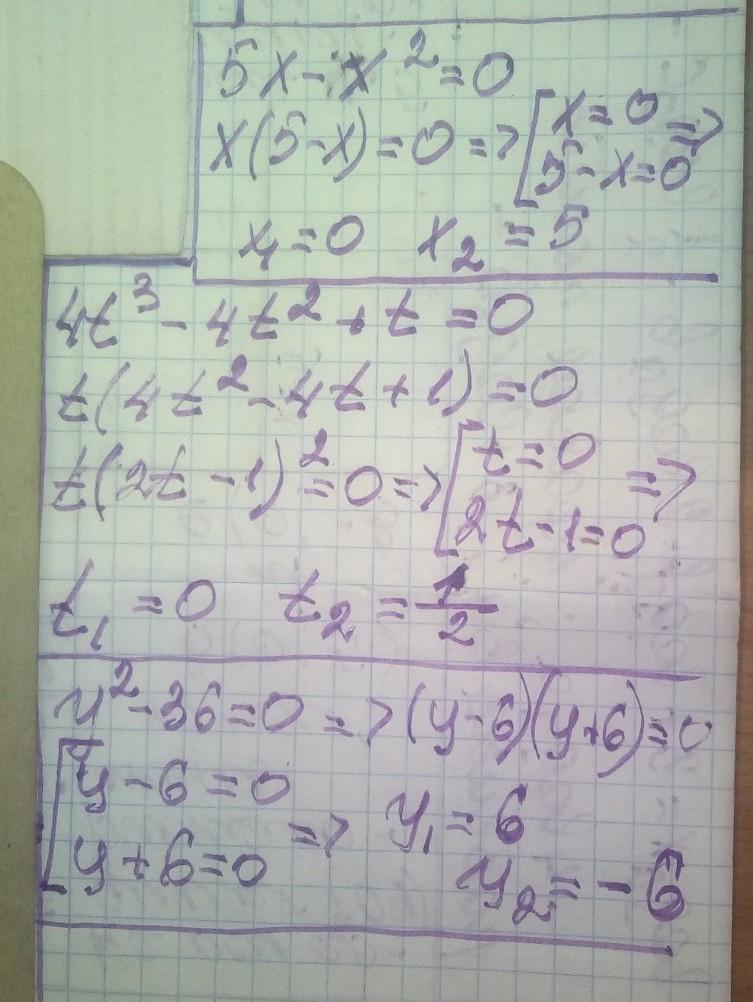 5x - x² = 0
x(5-x) = 0 => [x = 0 =>
5 - x = 0
x₁ = 0 x₂ = 5
4t³ - 4t² + t = 0
t(4t² - 4t + 1) = 0
t(2t - 1)² = 0 => [t = 0 =>
2t - 1 = 0
t₁ = 0 t₂ = 1/2
y² - 36 = 0 => (y - 6)(y + 6) = 0
[y - 6 = 0
y + 6 = 0 => y₁ = 6
y₂ = - 6